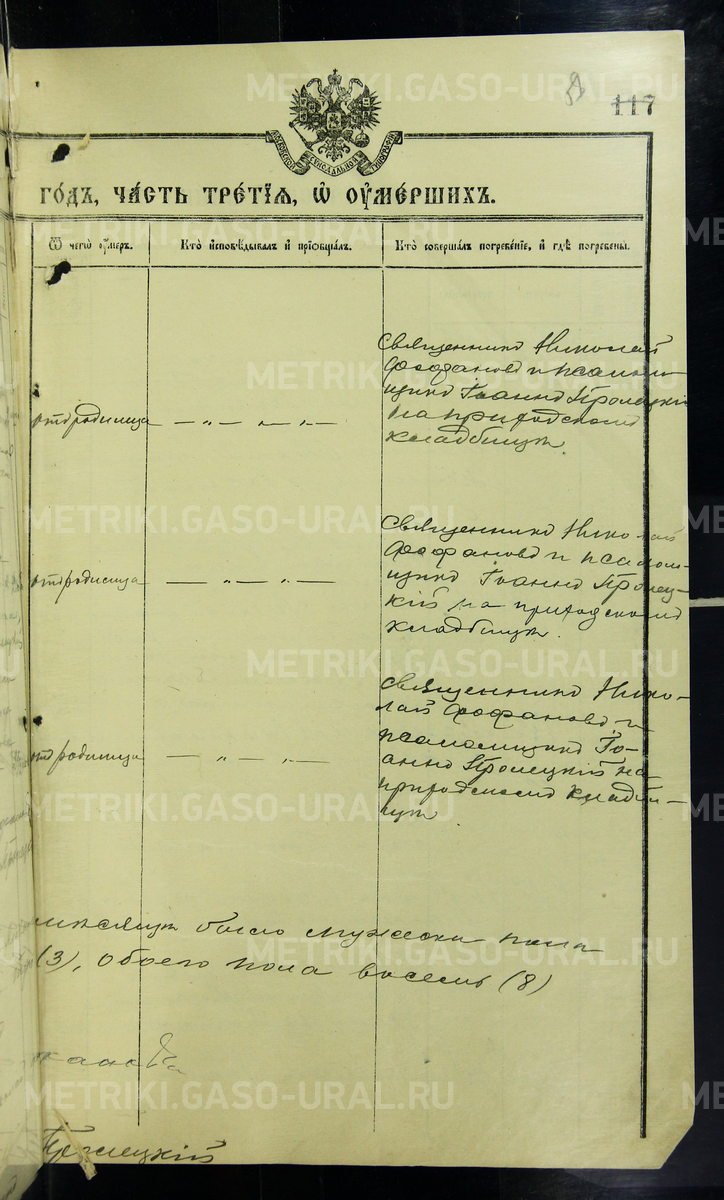 117
МОСКОВСКОЙ СѴНОДАЛЬНОЙ ТИПОГРАФІИ
ГО́ДЪ, ЧА́СТЬ ТРЕ́ТІѦ, Ѽ ОУ҆МЕ́РШИХЪ.
Ѿ чегѡ̀ оу҆́меръ.
Кто̀ и҆сповѣ́дывалъ и҆ прїѡбща́лъ.
Кто̀ соверша́лъ погребе́нїе, и҆ гдѣ̀ погребены̀.
отъ родимца
— „ — „ — „ —
Священникъ Николай
Фофановъ и псалом-
щикъ Іоаннъ Пролецкій
на приходскомъ
кладбищѣ.
отъ родимца
— „ — „ —
Священникъ Николай
Фофановъ и псалом-
щикъ Іоаннъ Пролец-
кій на приходскомъ
кладбищѣ.
отъ родимца
— „ — „ —
Священникъ Нико-
лай Фофановъ и
псаломщикъ Іо-
аннъ Пролецкій на
приходскомъ кладби-
щѣ.
мѣсяцѣ было мужеска пола
(3), обоего пола восемь (8)
METRIKI.GASO-URAL.RU